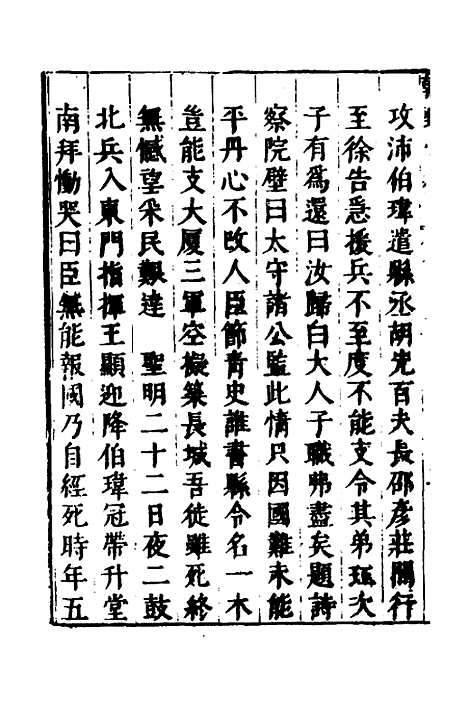 攻沛伯瑋遣縣丞胡先百夫長邵彥莊間行
至徐告急援兵不至度不能支令其弟珏次
子有爲還曰汝歸白大人子職弗盡矣題詩
察院壁曰太守諸公監此情只因國難未能
平丹心不改人臣節青史誰書縣令名一木
豈能支大厦三軍空擬築長城吾徒雖死終
無憾望采民艱達　聖明二十二日夜二鼓
北兵入東門指揮王顯迎降伯瑋冠帶升堂
南拜慟哭曰臣無能報國乃自經死時年五